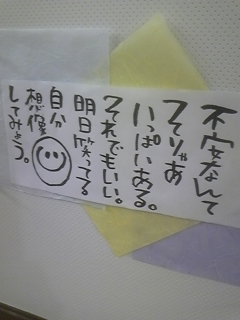 不安なんて
そりゃあ
いっぱいある。
それでもいい。
明日笑ってる
自分
想像
してみよう。